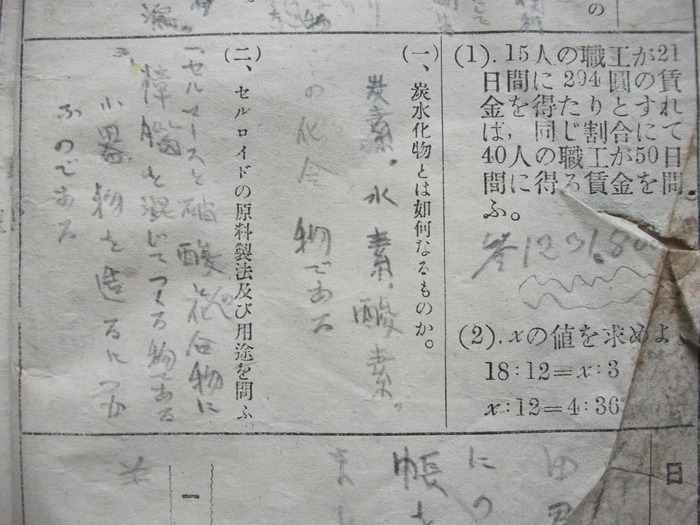 の
(1). 15人の職工が21
日間に 294 圓の賃
金を得たりとすれ
ば, 同じ割合にて
40人の職工が50日
間に得る賃金を問
ふ。
答 1231.80
(2). xの値を求めよ
18:12=x:3
x:12=4:36
一、炭水化物とは如何なるものか。
炭素、水素、酸素。
の化合物である
(二、セルロイドの原料製法及び用途を問ふ。
セルロースと硝酸の化合物に
樟脳を混じてつくる物である
小器物を造るに
ふのである
日
にの
帳を
一